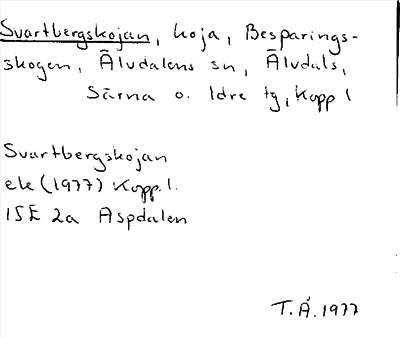 Svartbergskojan, koja, Besparings-
skogen, Älvdalens sn, Älvdals,
Särna o. Idre tg, Kopp l
Svartbergskojan
ek (1977) Kopp. l.
15E 2a Aspdalen
T.Å. 1977